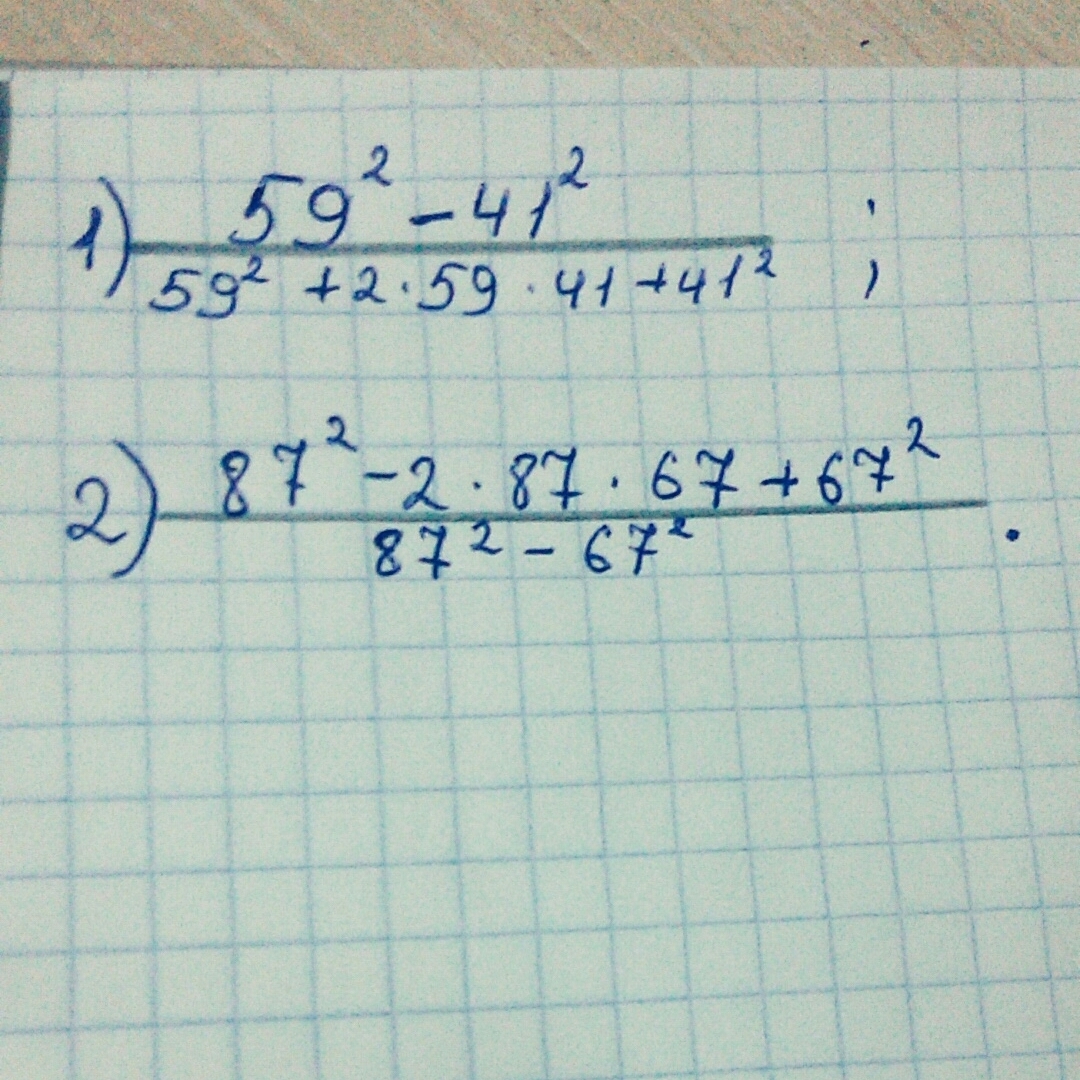 1) 59² - 41²
59² + 2 · 59 · 41 + 41² ;
2) 87² - 2 · 87 · 67 + 67²
87² - 67² .